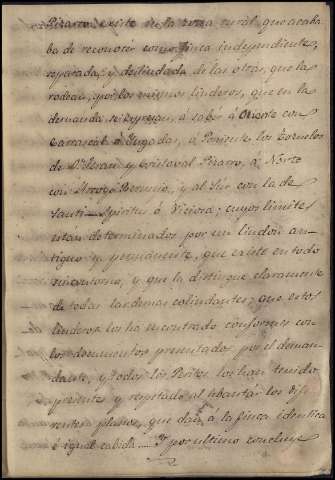 Pizarro existe en la zona rural, que acaba
ba de reconocer como finca independiente,
separada, y deslindada de las otras, que la
rodean, y por los mismos linderos, que en la
demanda se expresan, á saber á Oriente con
Carrascal ó Yugadas, á Poniente los Toruelos
de Dn. Juan y Cristoval Pizarro, á Norte
con Arroyo Bermejo, y al Sur con la de
Santi-Spiritus ó Viciosa; cuyos limites
están determinados por un lindon an-
tiguo y permanente, que existe en todo
su contorno, y que la distingue claramente
de todas las demas colindantes; que estos
linderos los ha encontrado conformes con
los documentos presentados por el deman-
dante, y todos los Peritos los han tenido
presentes y respetado al levantar los dife
rentes planos, que dan á la finca identica
é igual cabida. Y por ultimo concluye